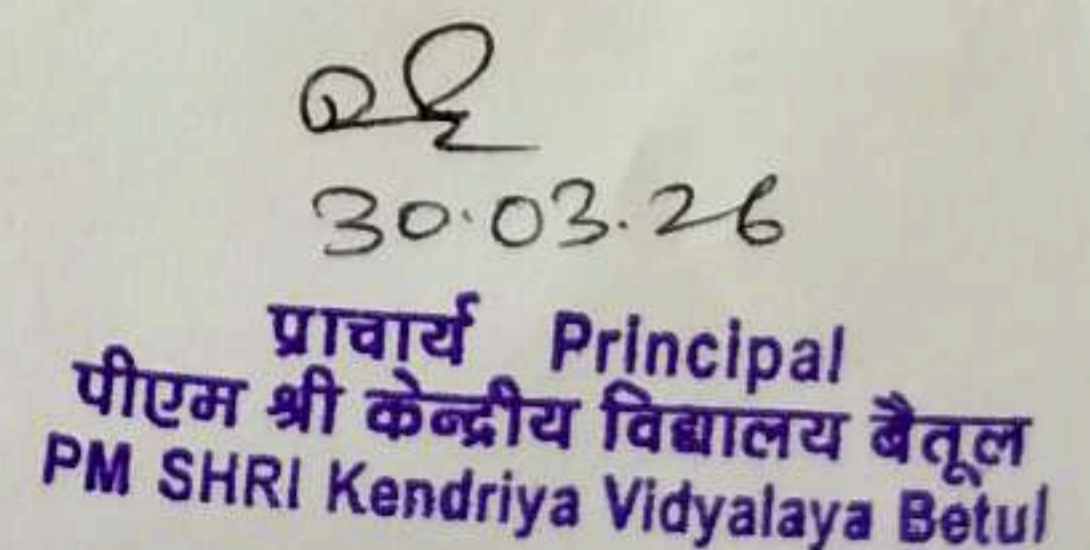 30.03.26
प्राचार्य Principal
पीएम श्री केन्द्रीय विद्यालय बैतूल
PM SHRI Kendriya Vidyalaya Betul